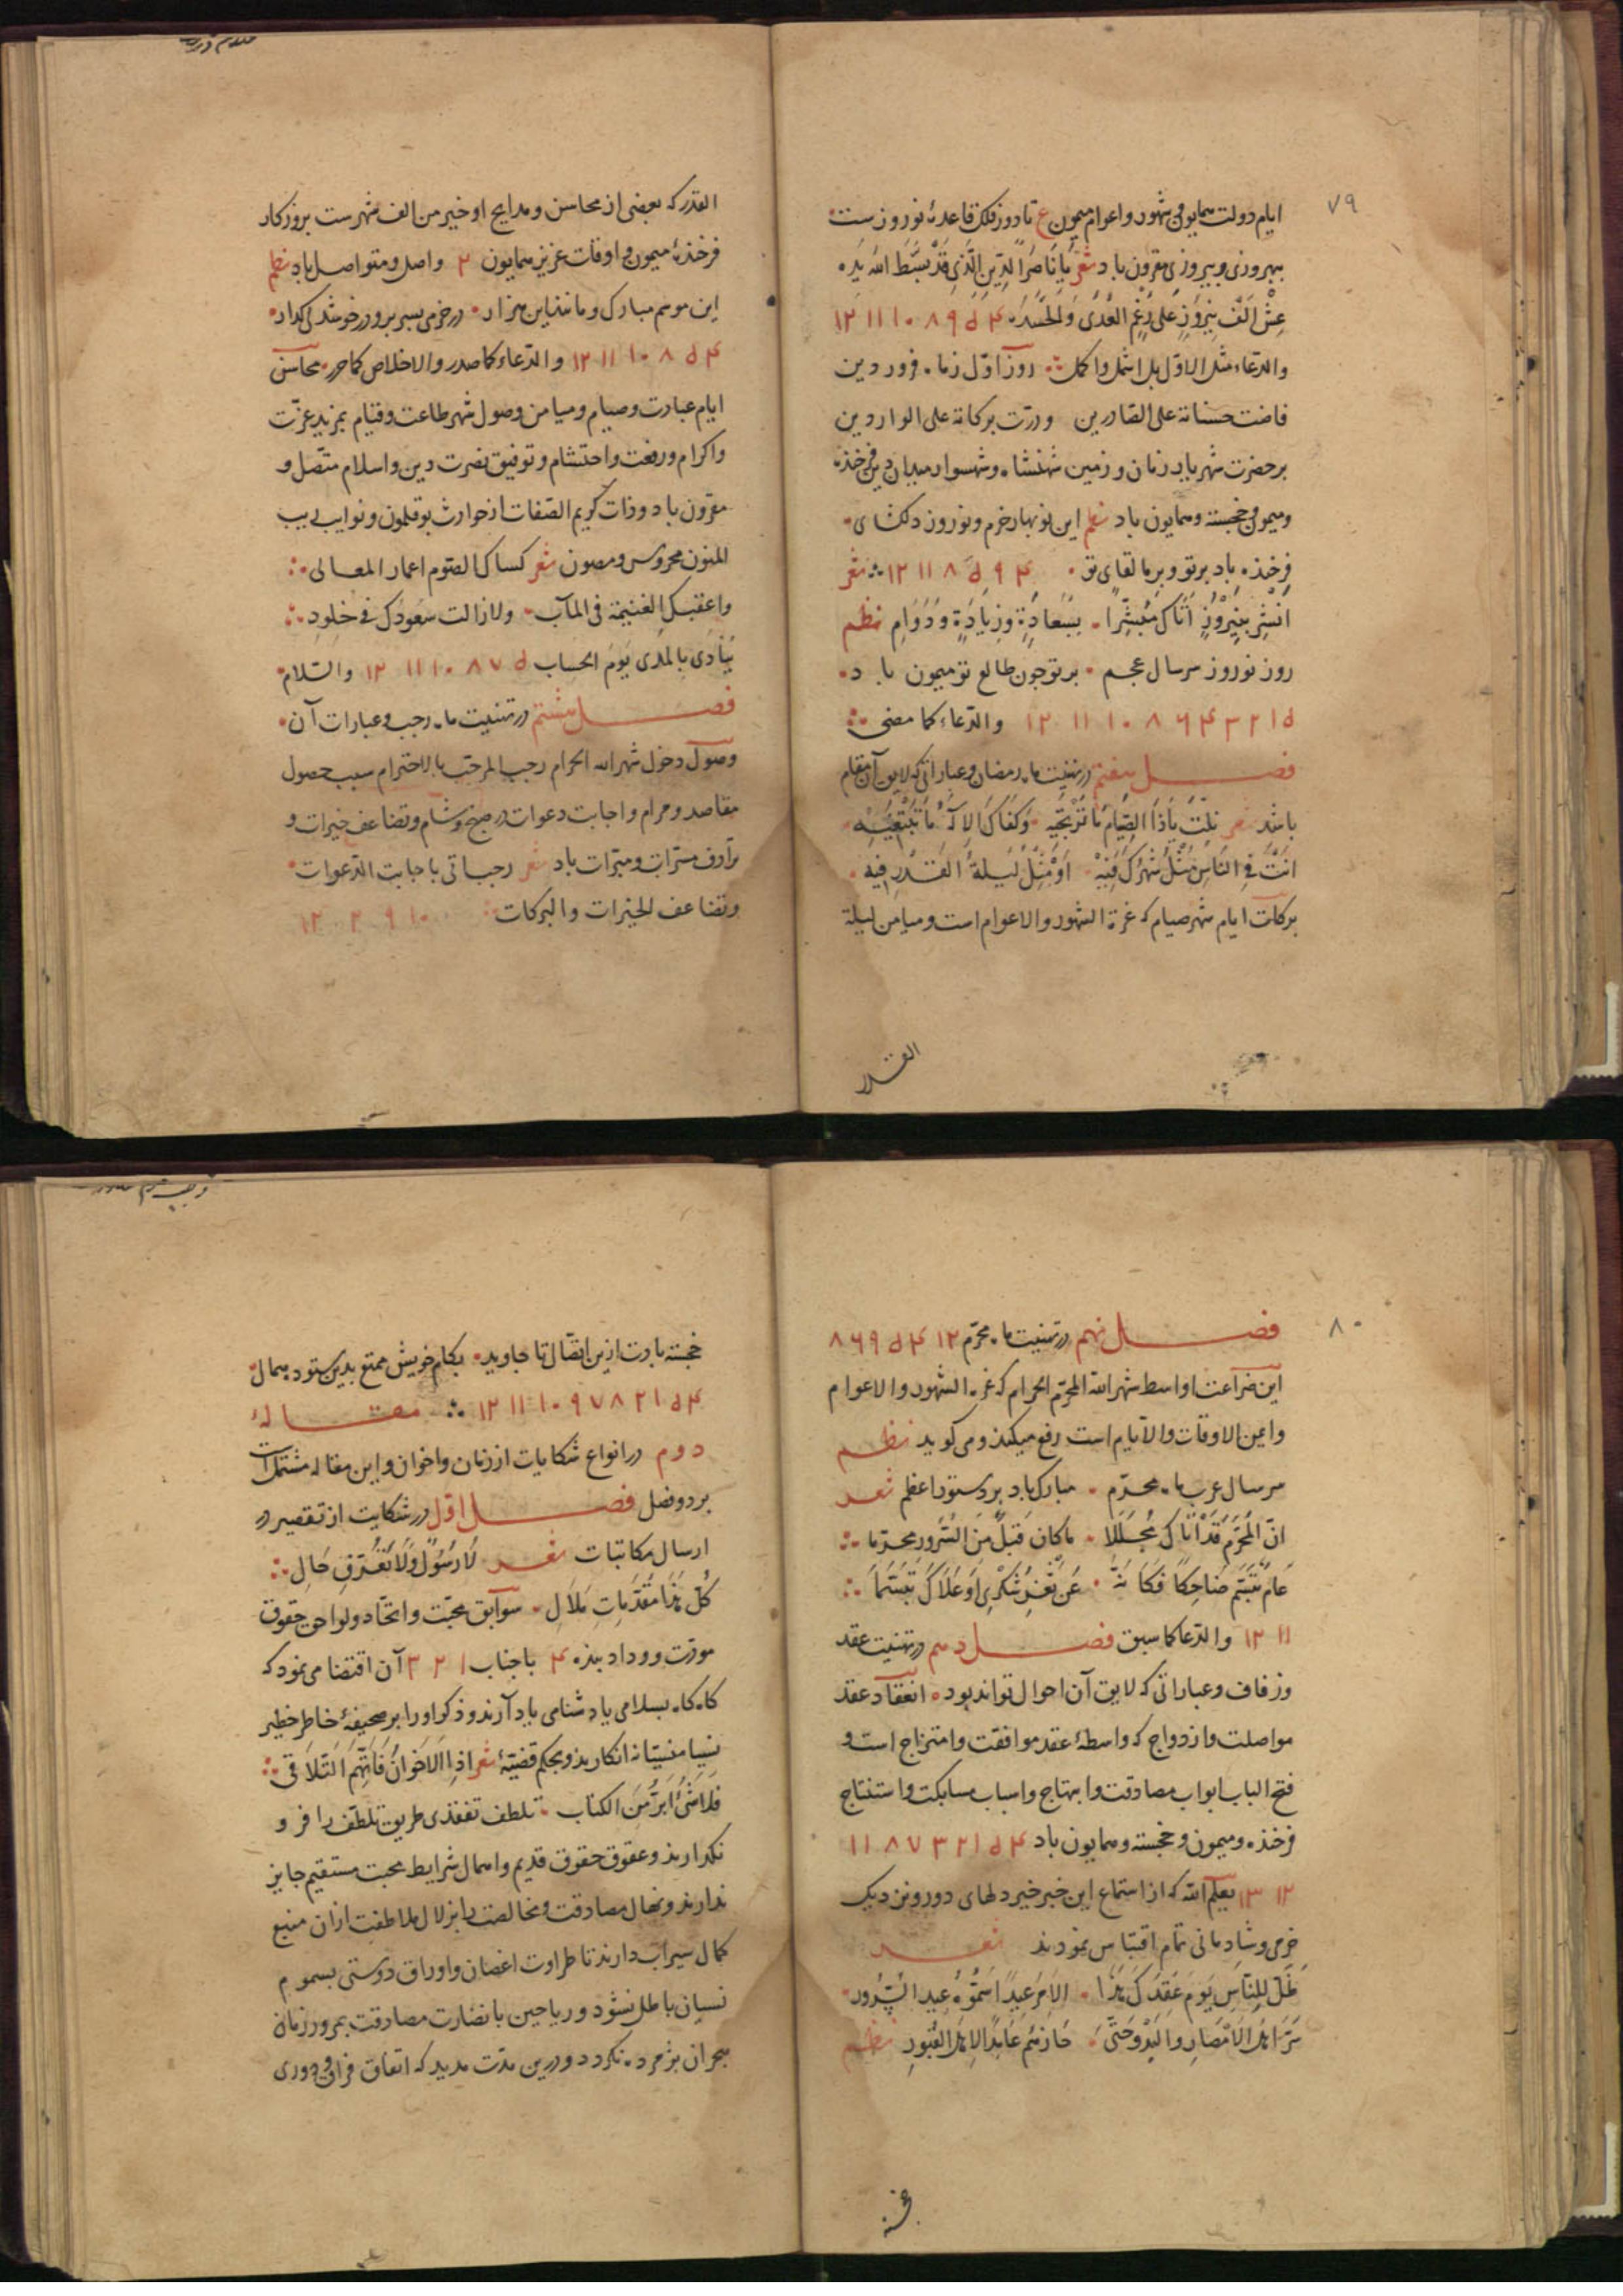 ۷۹
ایام دولت همایون و شهور و اعوام میمون ع تا دور فلک قاعدهٔ نوروزست
بهروزی و پیروزی مقرون باد شعر یَا نَاصِرًا لِلدِّینِ الَّذِی قَدْ بَسَّطَ اللهُ یَدَه
عِشْ اَلْفَ نِیرُوزٍ عَلَی رَغْمِ العُدَی وَالحَسَدَه ۴ ۵ ۹ ۸ ۱۰ ۱۱ ۱۲
والدعاء مثل الاوّل بل اشمل واکمل روز اوّل زماه فروردین
فاضت حسناته علی الصّادرین ودرّت برکاته علی الواردین
بر حضرت شهریار زمان و زمین شهنشاه و شهسوار میدان دین فرخنده
و میمون و خجسته و همایون باد نظم این نوبهار خرم و نوروز دلکشای
فرخنده باد بر تو و بر ما لقای تو ۴ ۹ ۵ ۸ ۱۱ ۱۲ شعر
اَبْشِرْ بِنِیرُوْزٍ اَتَاکَ مُبَشِّرًا بِسَعَادَةٍ وَزِیَادَةٍ وَدَوَامِ نظم
روز نوروز سر سال عجم بر تو چون طالع تو میمون باد
۵ ۱ ۲ ۳ ۴ ۶ ۸ ۱۰ ۱۱ ۱۲ والدعاء کما مضی
فصل هفتم در تهنیت ماه رمضان و عباراتی که لایق آن مقام
باشد شعر نِلْتَ یَا ذَا الصِّیَامِ مَا تَرْتَجِیهِ وَکَفَاکَ الاِلٰهُ مَا تَتَّقِیْهِ
اَنْتَ فِی النَّاسِ مِثْلُ شَهْرِکَ فِیْهِ اَوْ مِثْلُ لَیْلَةِ القَدْرِ فِیهِ
برکات ایام شهر صیام که غرة الشهور والاعوام است و میامن لیلة
القدر
القدر که بعضی از محاسن و مدایح او خیر من الف شهرست بروزکار
فرخندهٔ میمون و اوقات عزیز همایون ۲ واصل و متواصل باد نظم
این موسم مبارک و مانند این هزار در خرمی بسر بر و در خوشدلی کذار
۴ ۵ ۸ ۱۰ ۱۱ ۱۲ والدعاء کما صدر والاخلاص کما حرر محاسن
ایام عبادت و صیام و میامن وصول شهر طاعت و قیام بمزید عزّت
و اکرام و رفعت و احتشام و توفیق نصرت دین و اسلام متّصل و
مقرون باد و ذات کریم الصّفات از حوادث بوقلمون و نوایب ریب
المنون محروس و مصون شعر کساک الصّوم اعمار المعالی
واعقبک الغنیمة فی المآب ولازالت سعودک فی خلود
یُنادی بالمدی یوم الحساب ۵ ۷ ۸ ۱۰ ۱۱ ۱۲ والسّلام
فصل هشتم در تهنیت ماه رجب و عبارات آن
وصول دخول شهر الله الحرام رجب المرجّب بالاحترام سبب حصول
مقاصد و مرام و اجابت دعوات در صبح و شام و تضاعف خیرات و
ترادف مسرّات و مبرّات باد شعر رجب اتی باجابت الدّعوات
وتضاعف الخیرات والبرکات ۱۰ ۹ ۲ ۱۲
۸۰
فصل نهم در تهنیت ماه محرّم ۱۲ ۴ ۵ ۹ ۶ ۸
این ضراعت اواسط شهر الله المحرّم الحرام که غرة الشهور والاعوام
وایمن الاوقات والایام است رفع میکند و می کوید نظم
سر سال عرب ماه محرّم مبارک باد بر دستور اعظم شعر
انّ المُحَرَّمَ قَدْ اَتَاکَ مُحَلِّلا مَا کَانَ قَبْلُ مِنَ السُّرورِ محرّما
عَامٌ تَبَسَّمَ ضَاحِکًا فَکَاَنَّهُ عَنْ ثَغْرِ شُکْرِی اَوْ عُلَاکَ تَبَسَّمَا
۱۱ ۱۲ والدّعا کما سبق فصل دهم در تهنیت عقد
و زفاف و عباراتی که لایق آن احوال تواند بود انعقاد عقد
مواصلت و ازدواج که واسطهٔ عقد موافقت و امتزاج است و
فتح الباب ابواب مصادقت و ابتهاج و اسباب مسابکت و استنتاج
فرخنده و میمون و خجسته و همایون باد ۴ ۵ ۱ ۲ ۳ ۷ ۸ ۱۱
۱۲ ۱۳ یعلم الله که از استماع این خبر خیر دلهای دور و نزدیک
خرمی و شادمانی تمام اقتباس نمودند شعر
ظَلَّ لِلنَّاسِ یَومَ عَقْدِکَ هٰذَا الاَمْرُ عِیدًا سَمَّوْهُ عِیدَ السُّرُورِ
سَرَّ اَهْلَ الاَمْصَارِ وَالبَدْوِ حَتَّی جَازَهُمْ عَابِدًا لِاَهْلِ القُبُورِ نظم
خجسته
خجسته بادت ازین اتصال تا جاوید بکام خویش ممتع بدین ستوده همال
۴ ۵ ۱ ۲ ۸ ۷ ۹ ۱۰ ۱۱ ۱۲ مقالهٔ
دوم در انواع شکایات از زمان و اخوان و این مقاله مشتمل است
بر دو فصل فصل اوّل در شکایت از تقصیر در
ارسال مکاتبات شعر لَا رَسُوْلٌ وَلَا تَعَرُّفِ حَالِ
کُلّ هٰذَا مُقَدَّمَاتِ مَلَالِ سوابق محبّت و اتحاد و لواحق حقوق
مودّت و وداد بنده ۴ با جناب ۱ ۲ ۳ آن اقتضا می نمود که
کاه کاه بسلامی یا دشنامی یاد آرند و ذکر او را بر صحیفهٔ خاطر خطیر
نسیا منسیّا نه انکارند و بحکم قضیّهٔ شعر اذا الاخوانُ فَاتَهُمُ التَّلَاقی
فلا شئٌ اَبَرُّ مِنَ الکتاب تلطف تفقدی طریق تلطف را فرو
نکذارند و عقوق حقوق قدیم و اهمال شرایط محبت مستقیم جایز
ندارند و نهال مصادقت و مخالصت را بزلال ملاطفت از آن منبع
کمال سیراب دارند تا طراوت اغصان و اوراق دوستی بسموم
نسیان باطل نشود و ریاحین بانضارت مصادقت بمرور زمان
هجران پژمرده نکردد و درین مدّت مدید که اتفاق فراق و دوری